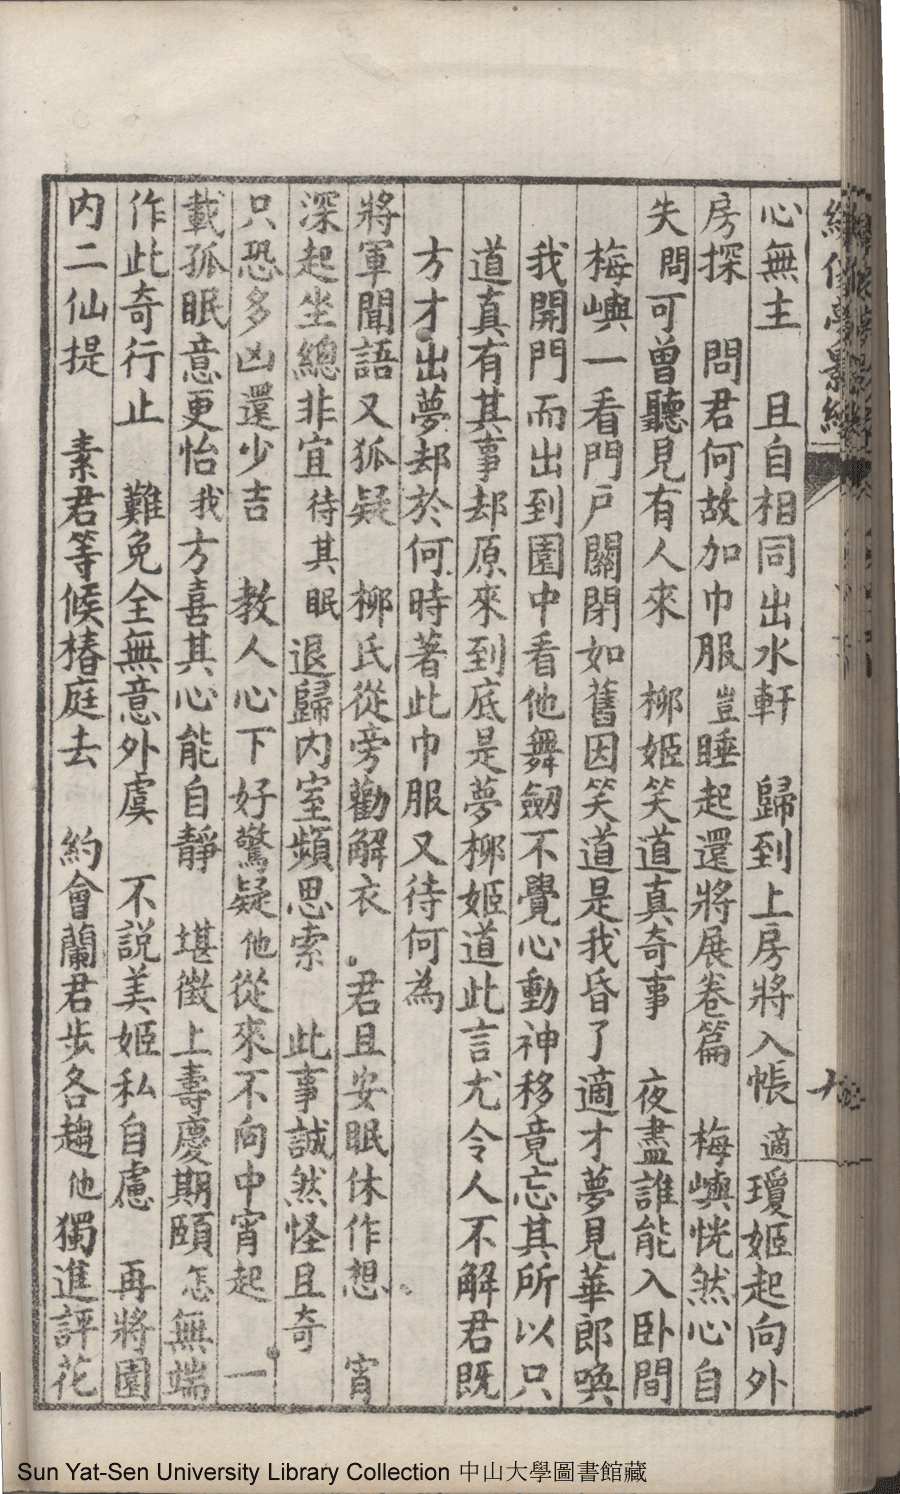 心無主　且自相同出水軒　歸到上房將入帳　適瓊姬起向外
房探　問君何故加巾服　豈睡起還將展卷篇　梅嶼恍然心自
失　問可曾聽見有人來　柳姬笑道真奇事　夜盡誰能入卧間
梅嶼一看門戶關閉如舊因笑道是我昏了適才夢見華郎喚
我開門而出到園中看他舞劒不覺心動神移竟忘其所以只
道真有其事却原來到底是夢柳姬道此言尤令人不解君既
方才出夢却於何時著此巾服又待何為
將軍聞語又狐疑　柳氏從旁勸解衣　君且安眠休作想　宵
深起坐總非宜　待其眠退歸內室頻思索　此事誠然怪且奇
只恐多凶還少吉　教人心下好驚疑　他從來不向中宵起　一
載孤眠意更怡　我方喜其心能自靜　堪徵上壽慶期頤　怎無端
作此奇行止　難免全無意外虞　不說美姬私自慮　再將園
內二仙提　素君等候椿庭去　約會蘭君步各趨　他獨進評花
Sun Yat-Sen University Library Collection 中山大學圖書館藏